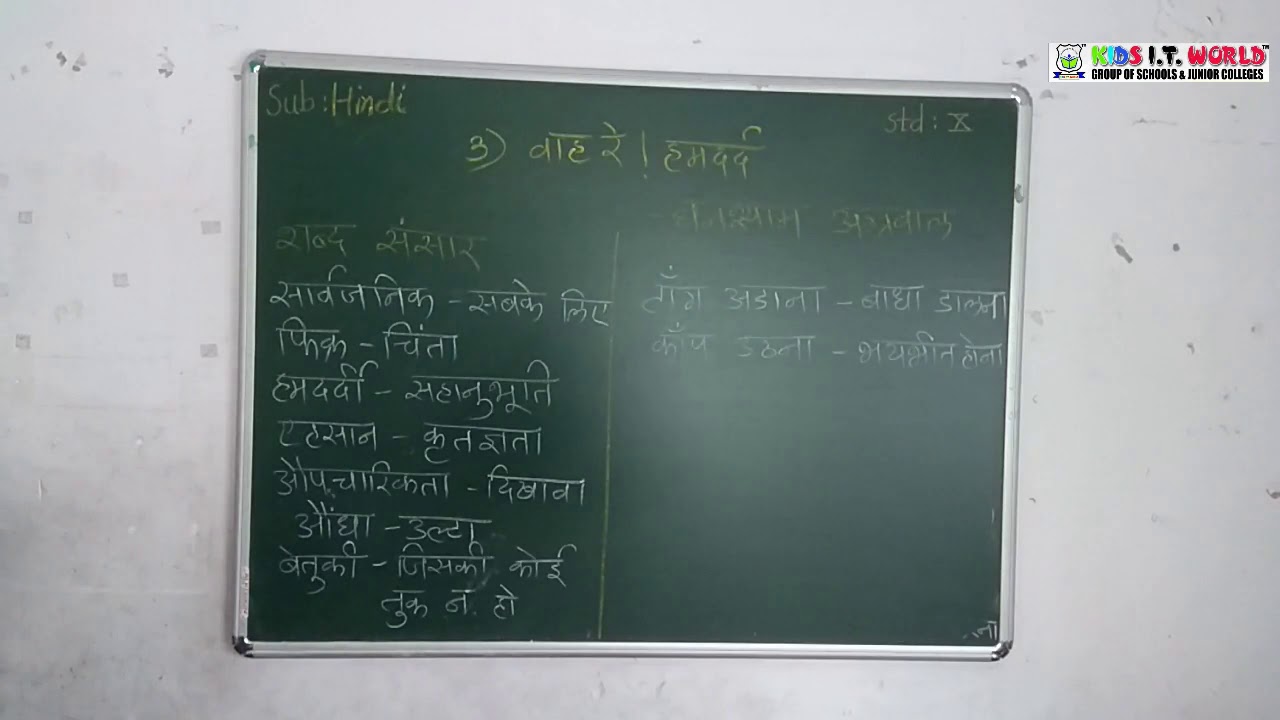 KIDS I.T. WORLD
GROUP OF SCHOOLS & JUNIOR COLLEGES
Sub : Hindi
Std : X
3) वाह रे ! हमदर्द
- घनश्याम अग्रवाल
शब्द संसार
सार्वजनिक - सबके लिए
फिक्र - चिंता
हमदर्दी - सहानुभूति
एहसान - कृतज्ञता
औपचारिकता - दिखावा
औंधा - उल्टा
बेतुकी - जिसकी कोई
तुक न हो
टाँग अडाना - बाधा डालना
काँप उठना - भयभीत होना